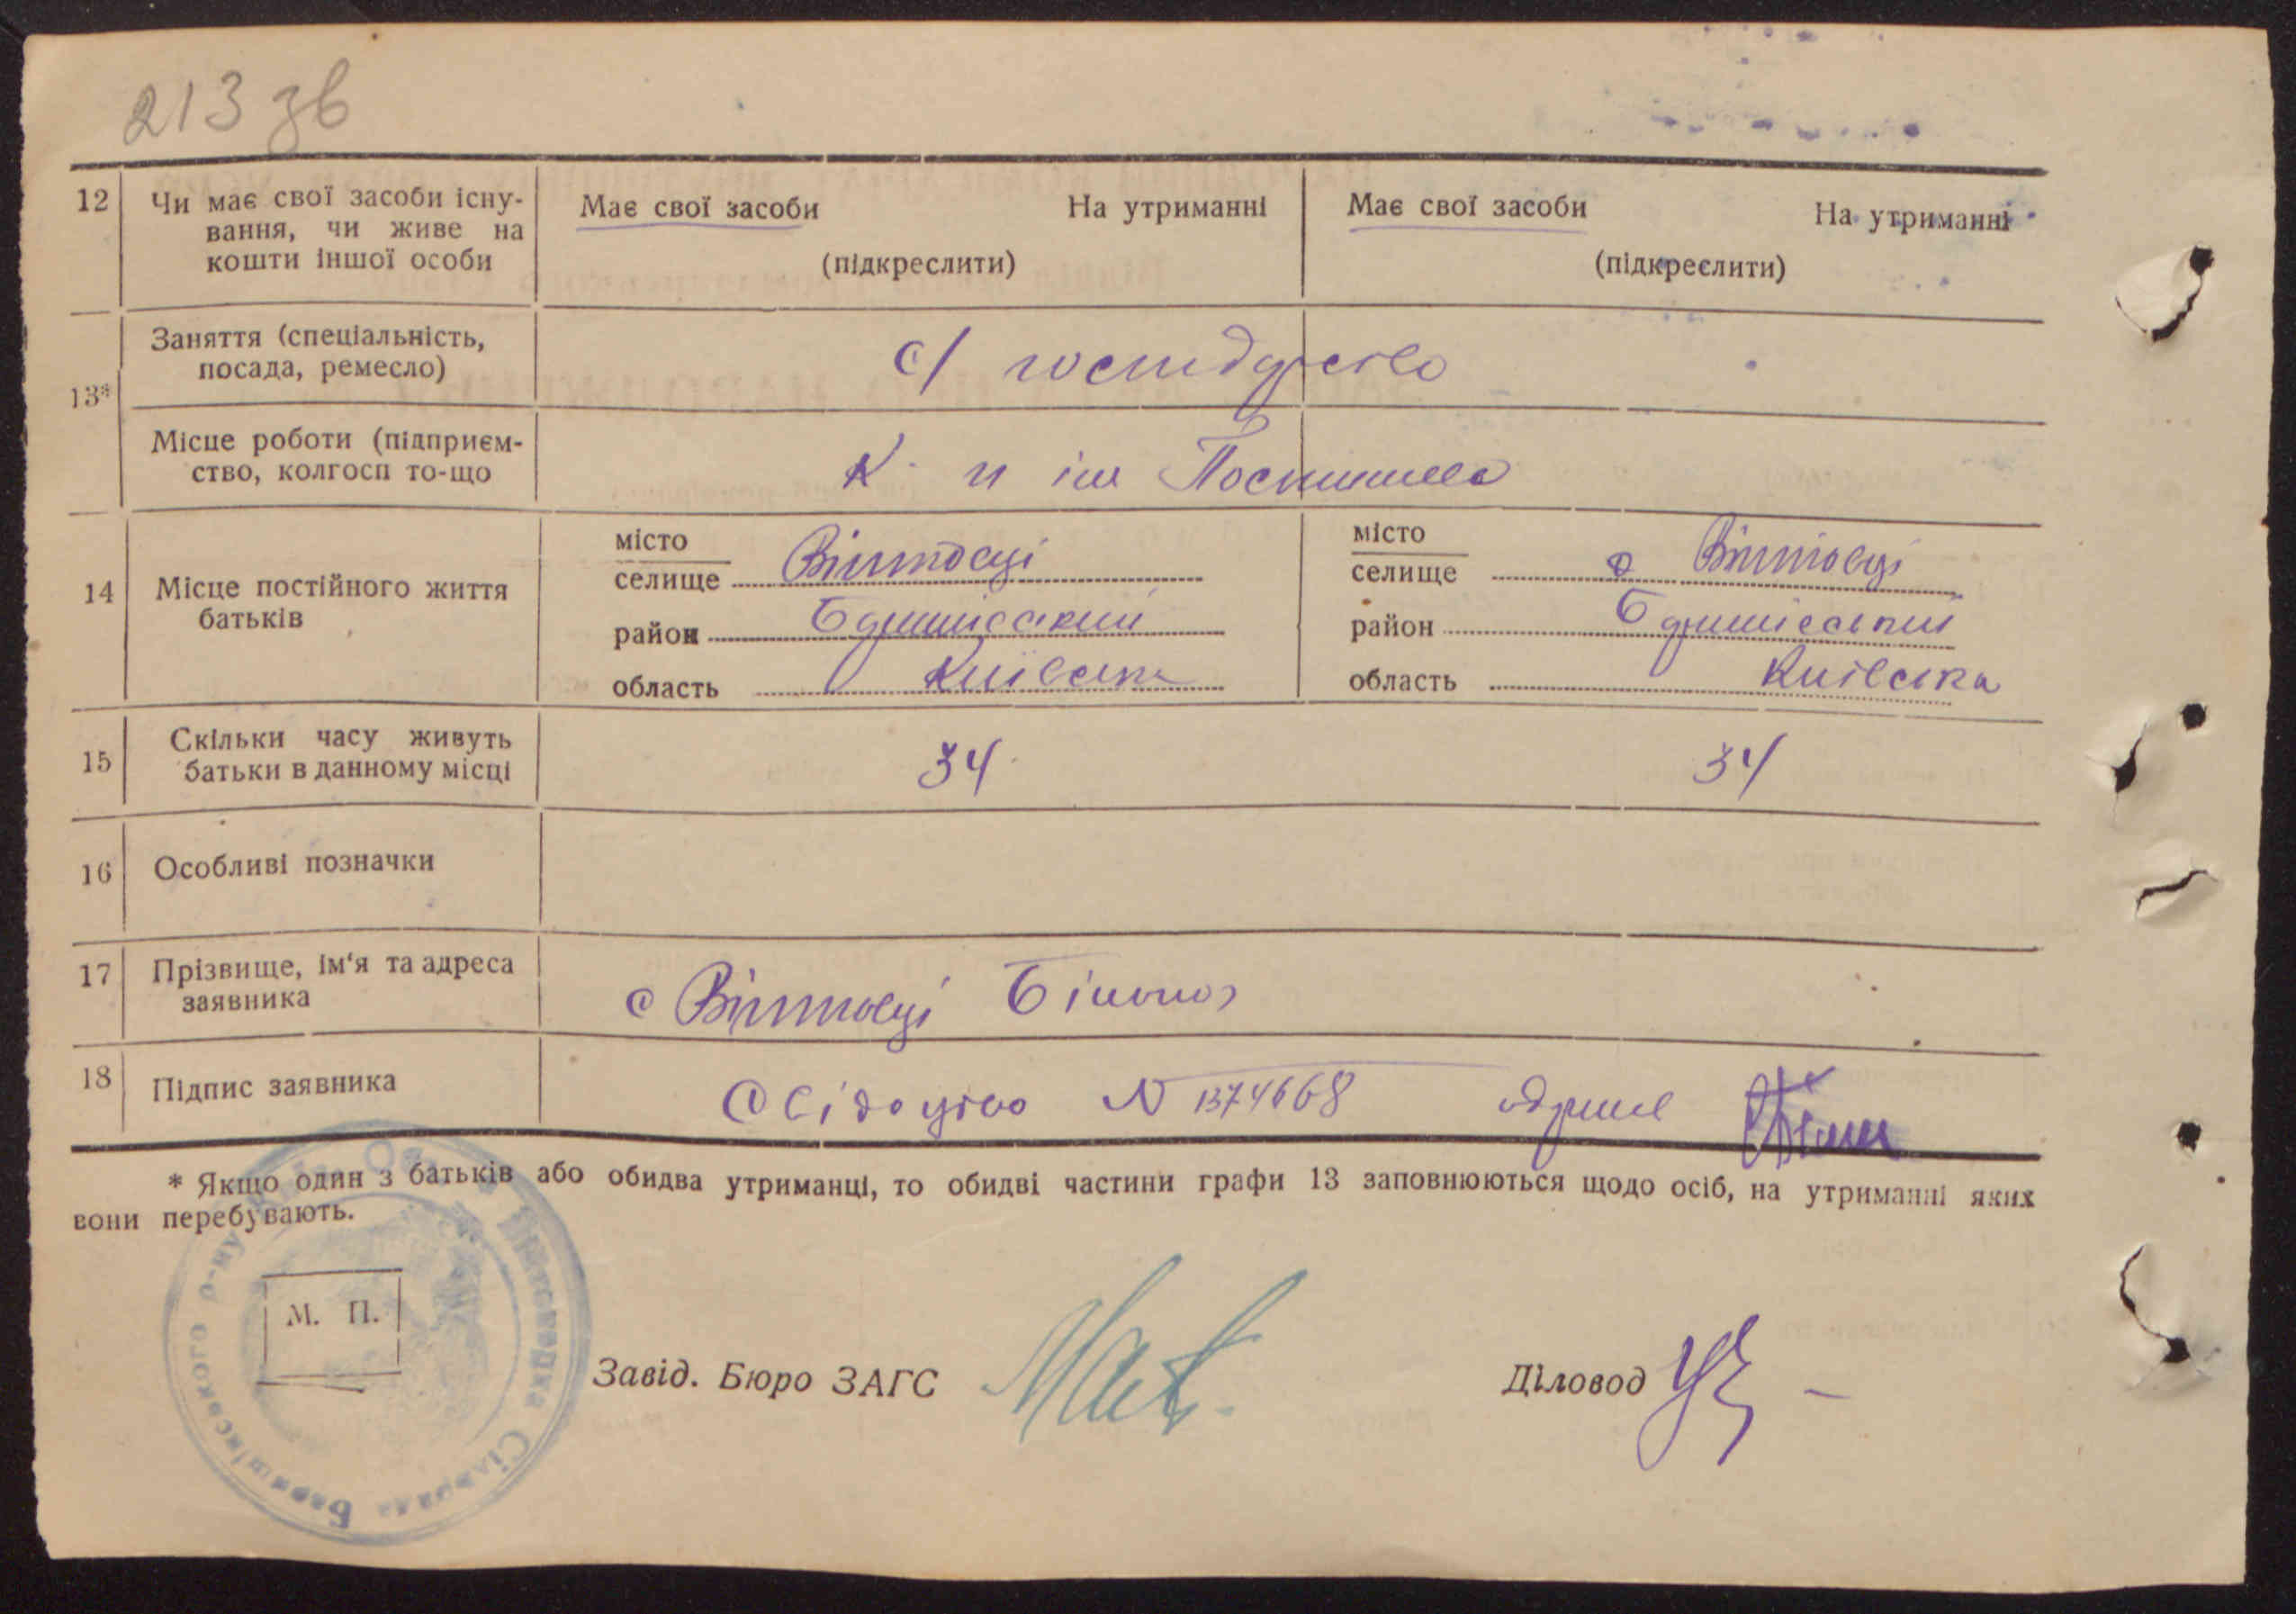 213 зв
12 Чи має свої засоби існу-
вання, чи живе на
кошти іншої особи
Має свої засоби На утриманні
(підкреслити)
Має свої засоби На утриманні
(підкреслити)
13*
Заняття (спеціальність,
посада, ремесло)
с/ господарство
Місце роботи (підприєм-
ство, колгосп то-що
К
14 Місце постійного життя
батьків
місто
селище Війтовці
район
область Київська
місто
селище с Війтовці
район
область Київська
15 Скільки часу живуть
батьки в данному місці
34 34
16 Особливі позначки
17 Прізвище, ім'я та адреса
заявника
с Війтовці
18 Підпис заявника
N 1374668
* Якщо один з батьків або обидва утриманці, то обидві частини графи 13 заповнюються щодо осіб, на утриманні яких
вони перебувають.
М. П.
Завід. Бюро ЗАГС
Діловод